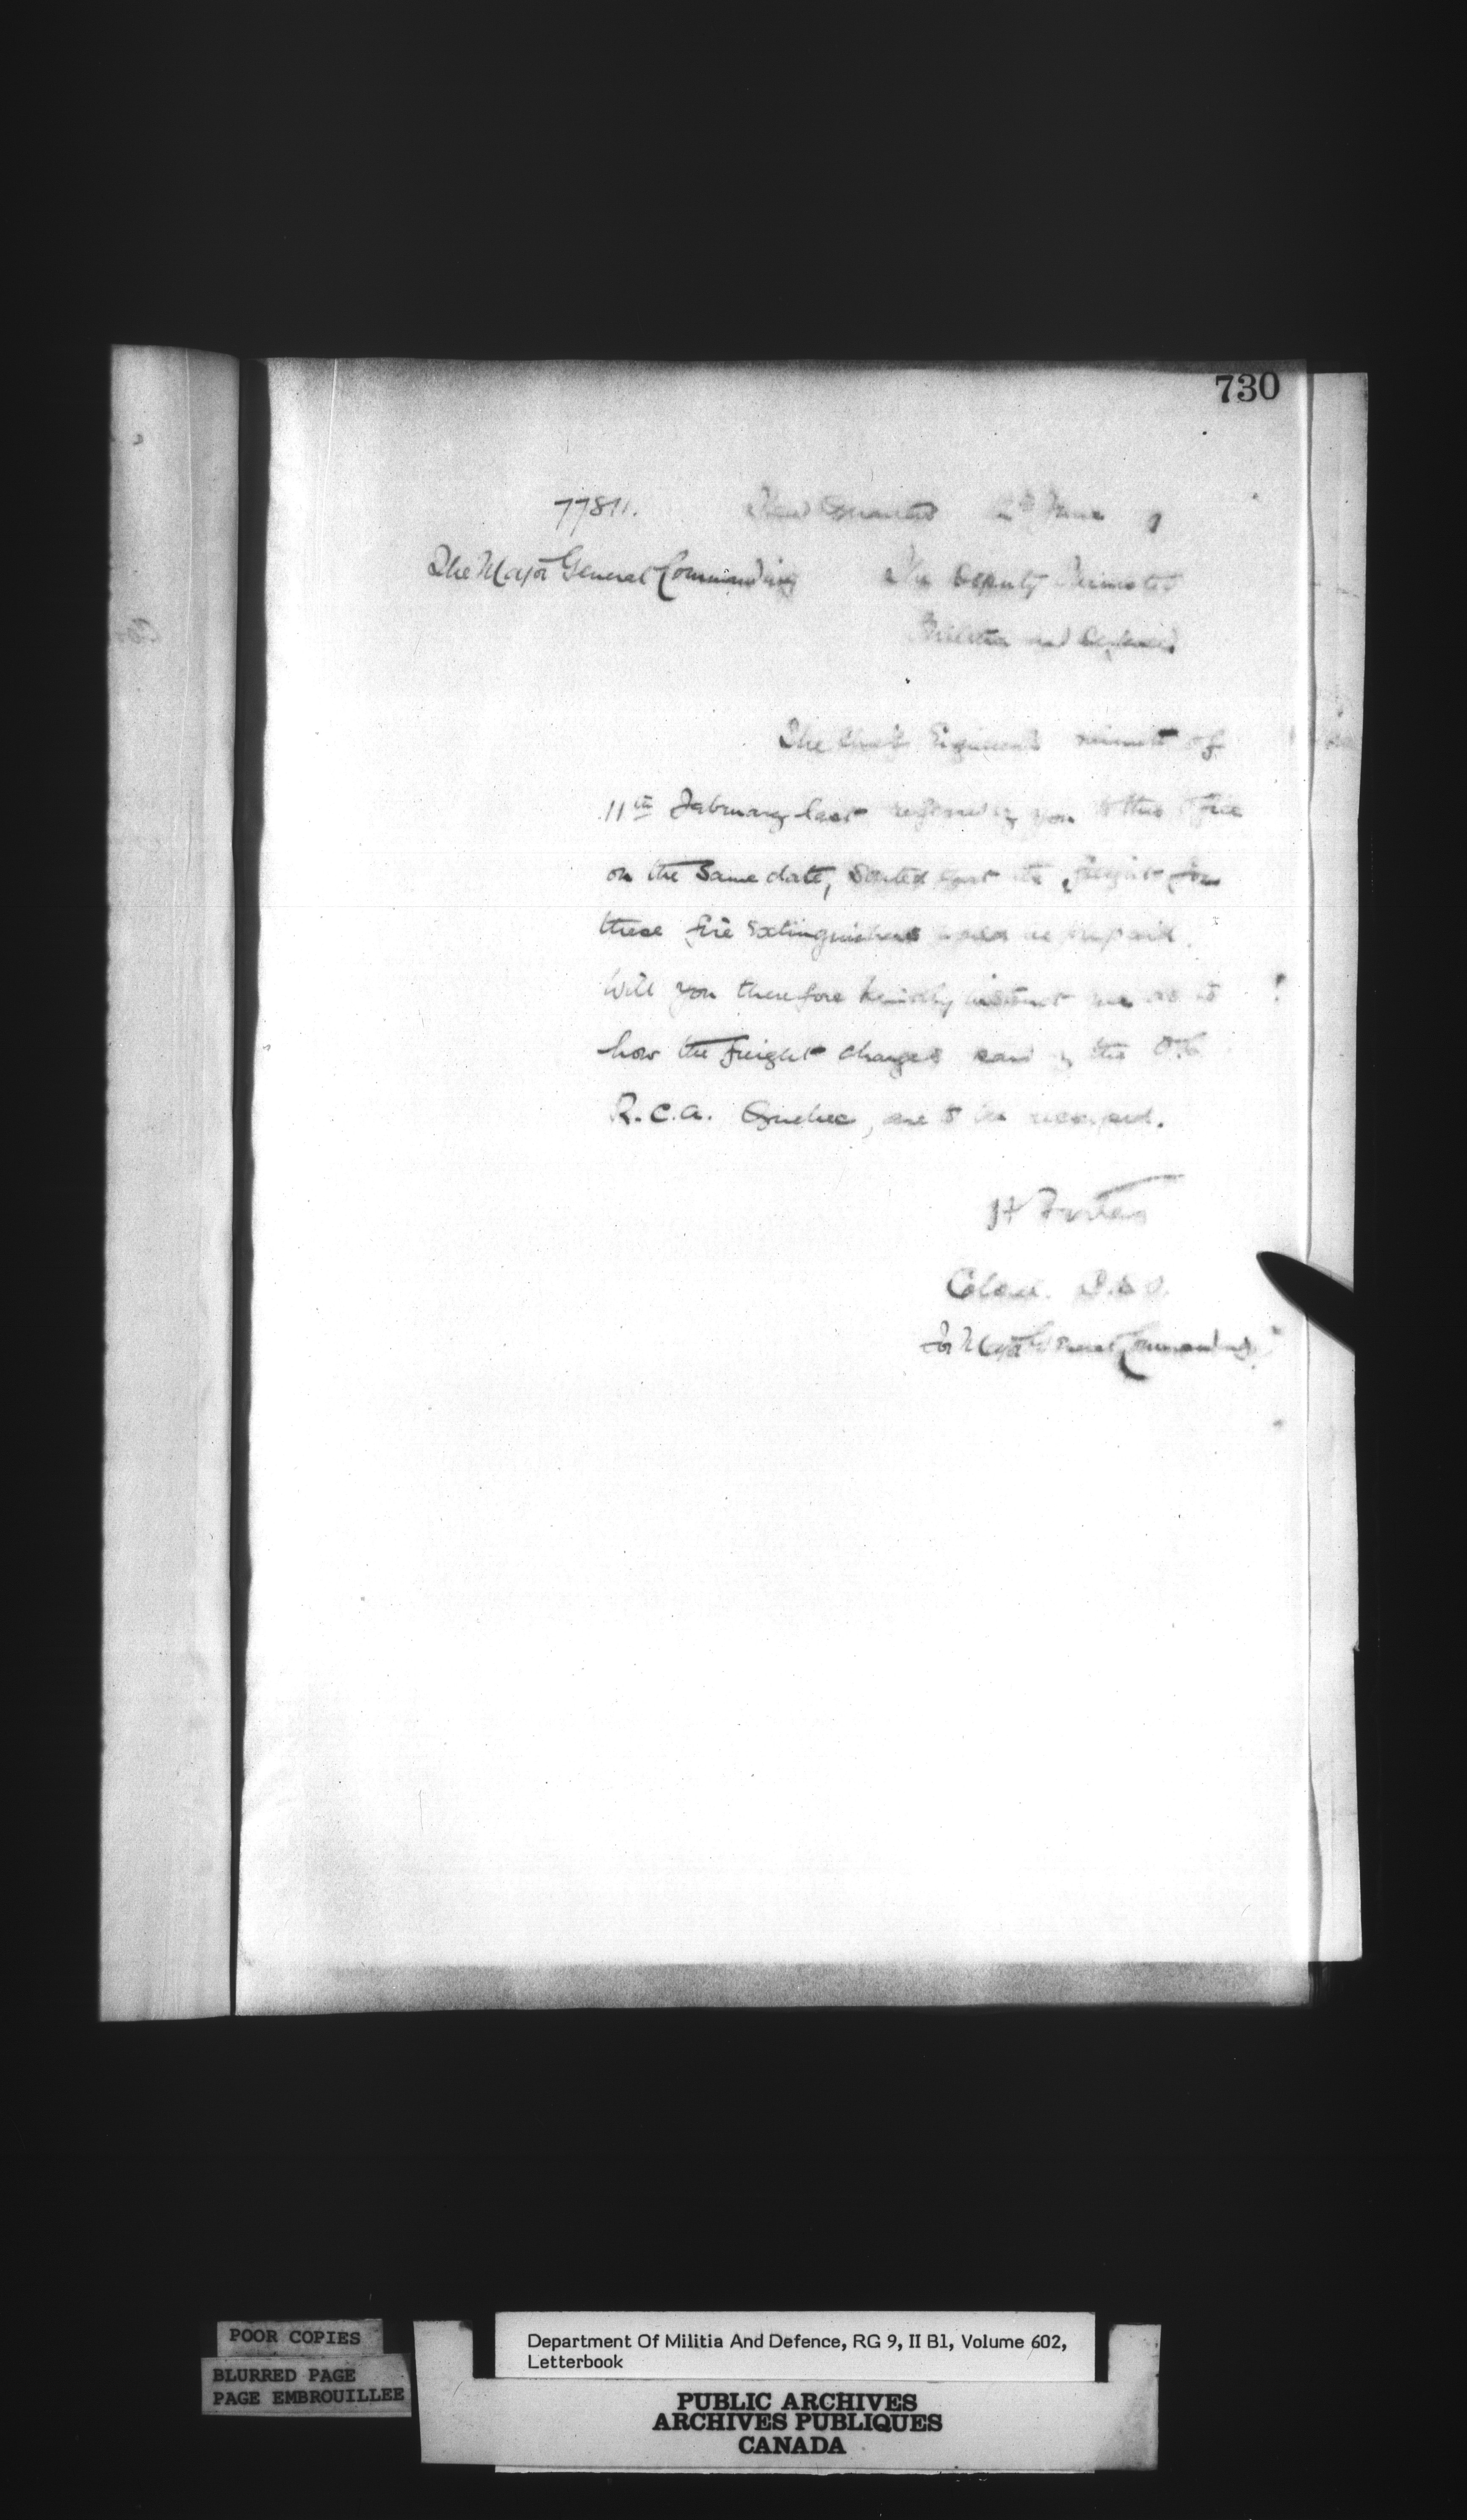 730
77811. Head Quarters 2nd June
The Major General Commanding The Deputy Minister
Militia and Defence
The Chief Engineer's minute of
11th February last by you to this Office
on the same date, stated that the freight for
these fire extinguishers be prepaid.
Will you therefore kindly instruct me as to
how the freight charges the O.C.
R.C.A. Quebec, are to be
H Foster
Colonel
for Major General Commanding
POOR COPIES
BLURRED PAGE
PAGE EMBROUILLEE
Department Of Militia And Defence, RG 9, II B1, Volume 602,
Letterbook
PUBLIC ARCHIVES
ARCHIVES PUBLIQUES
CANADA